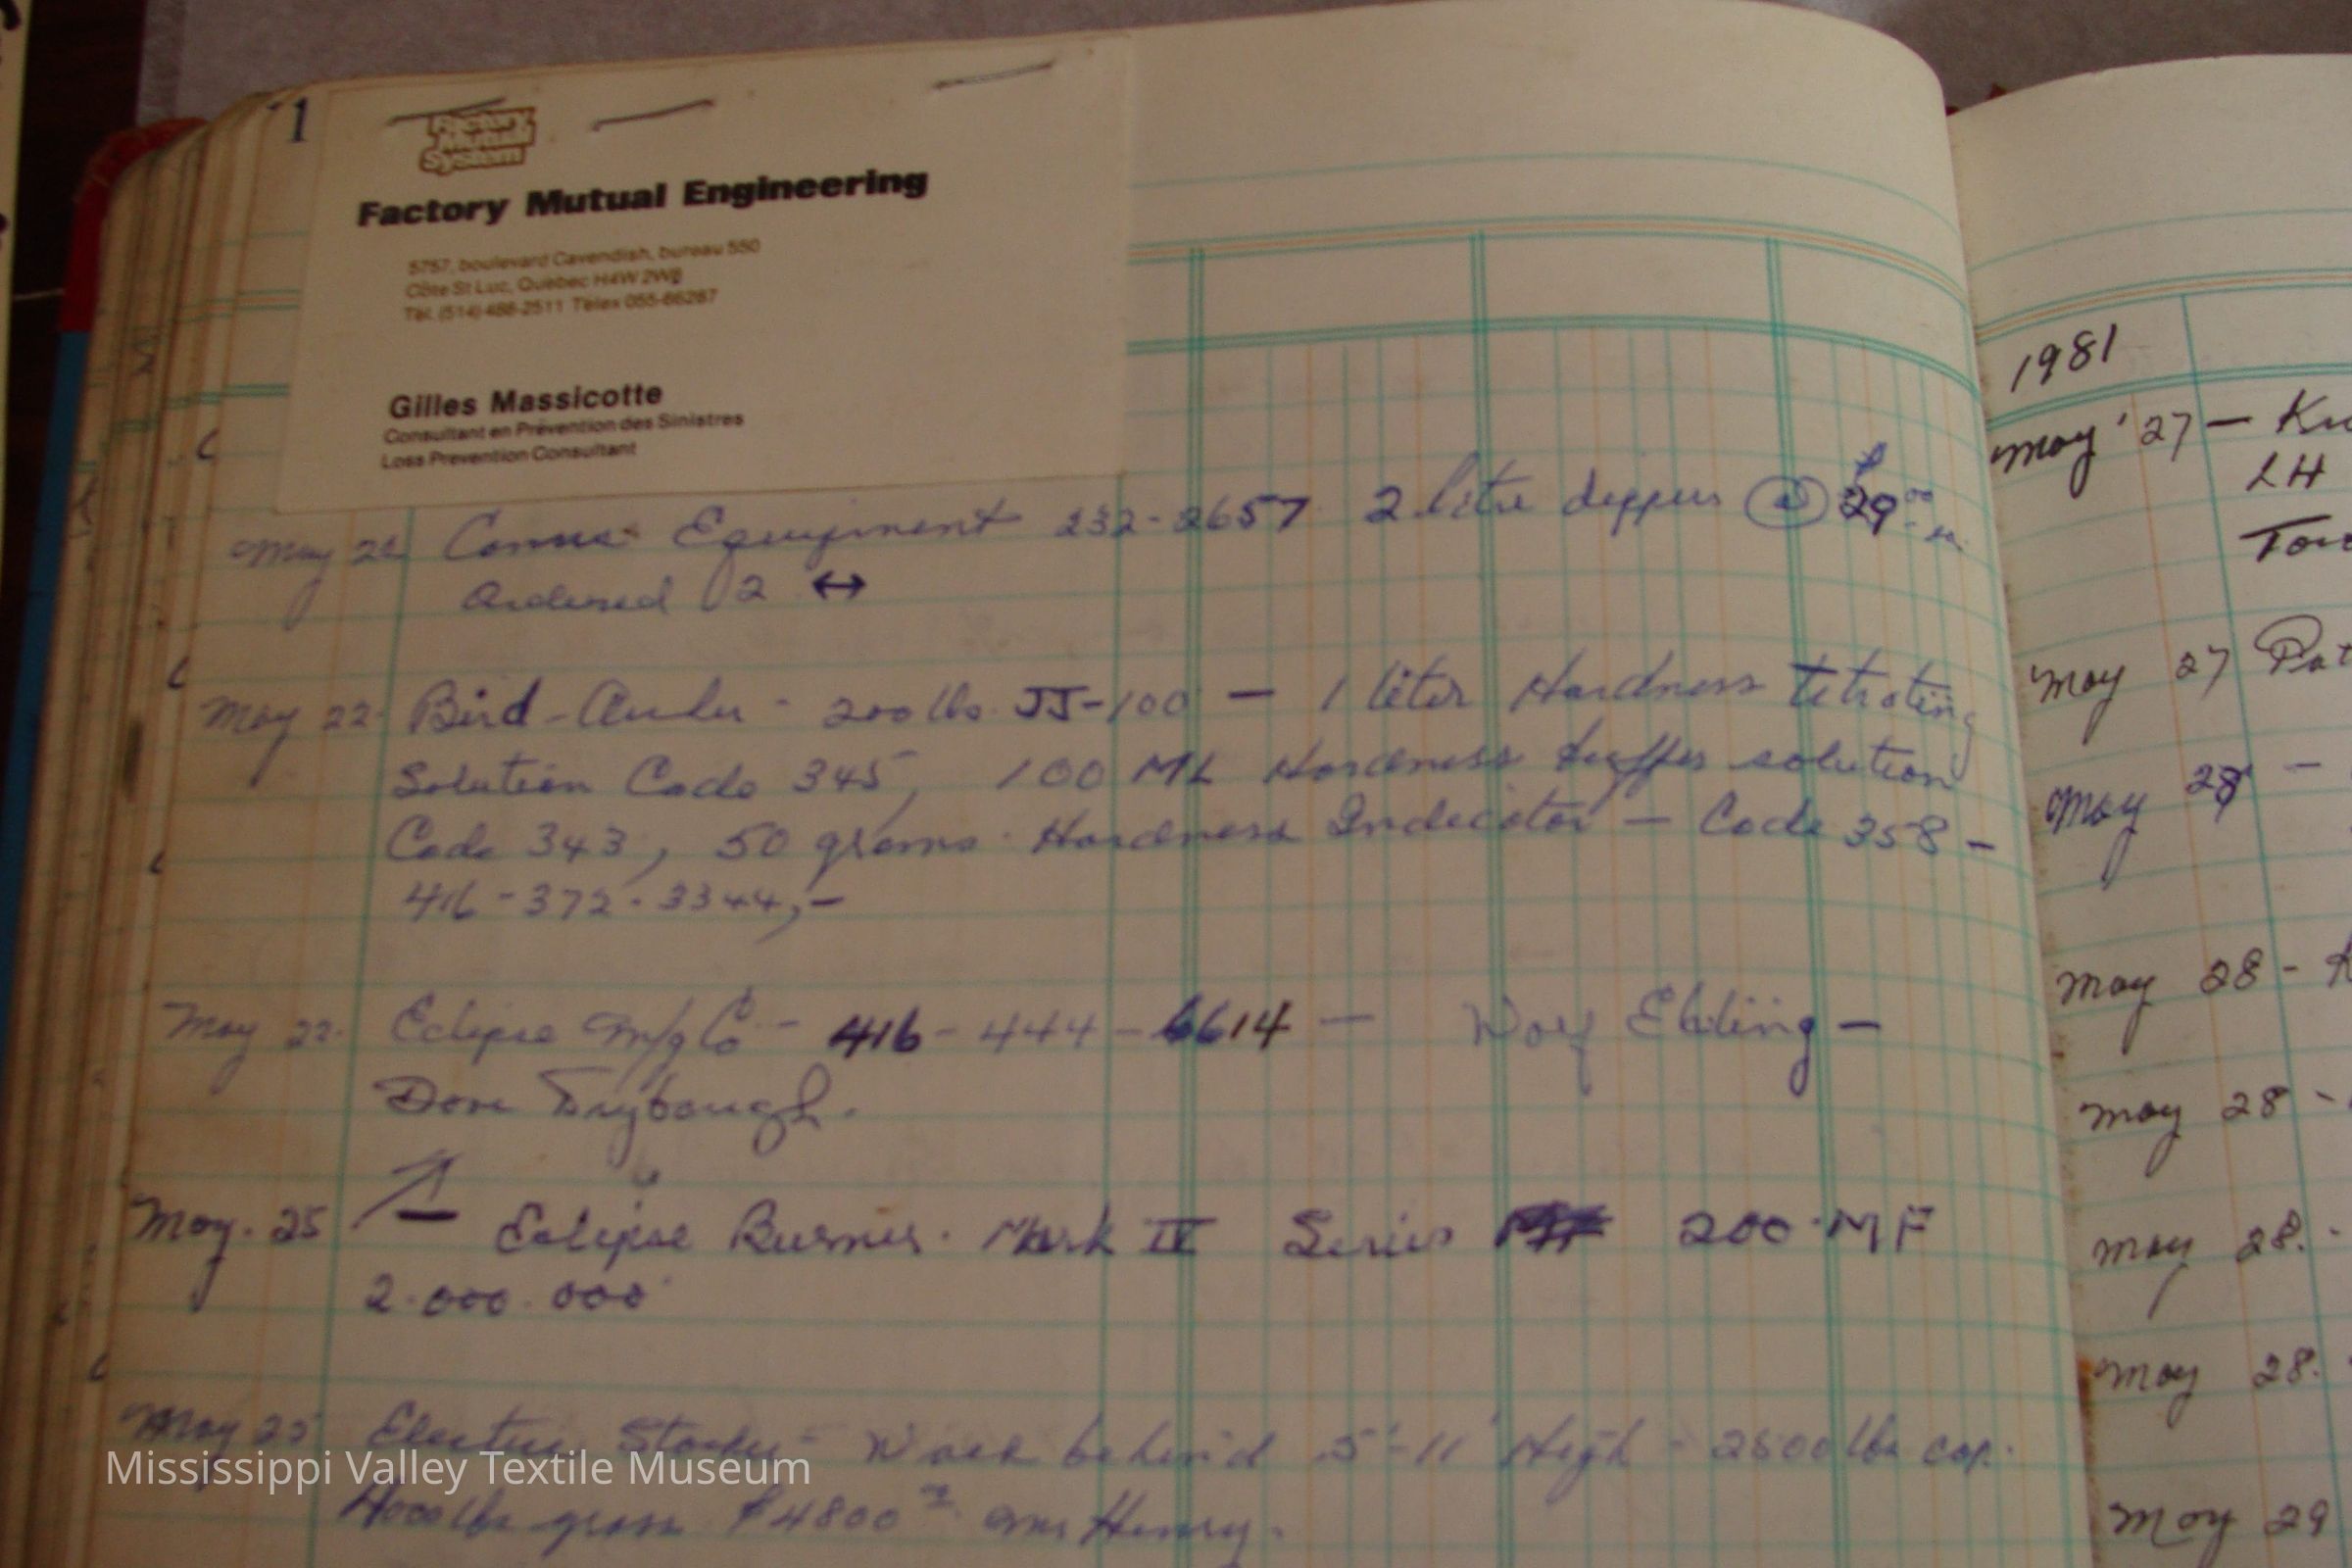 1
Factory
Mutual
System
Factory Mutual Engineering
5757, boulevard Cavendish, bureau 550
Côte St Luc, Québec H4W 2W8
Tél. (514) 486-2511 Telex 055-66267
Gilles Massicotte
Consultant en Prévention des Sinistres
Loss Prevention Consultant
May 21 Equipment 232-2657 2 litre dipper @ $29.00
Ordered 2 ↔
May 22 Bird - 200 lbs. JJ-100 — 1 liter Hardness titrating
Solution Code 345, 100 ML Hardness buffer solution
Code 343, 50 grams Hardness Indicator — Code 358 —
416-372-3344,—
May 22. Eclipse Mfg Co - 416-444-6614 —
May. 25 — Eclipse Burner. Mark IV Series 200 MF
2.000.000
May 25 Electric - Walk behind 5'-11' High - 2500 lbs cap.
4000 lbs gross $4800 Henry.
1981
May 27 —
LH
May 27 Pat
May 28 —
May 28 -
May 28 -
May 28. -
May 28.
May 29
Mississippi Valley Textile Museum